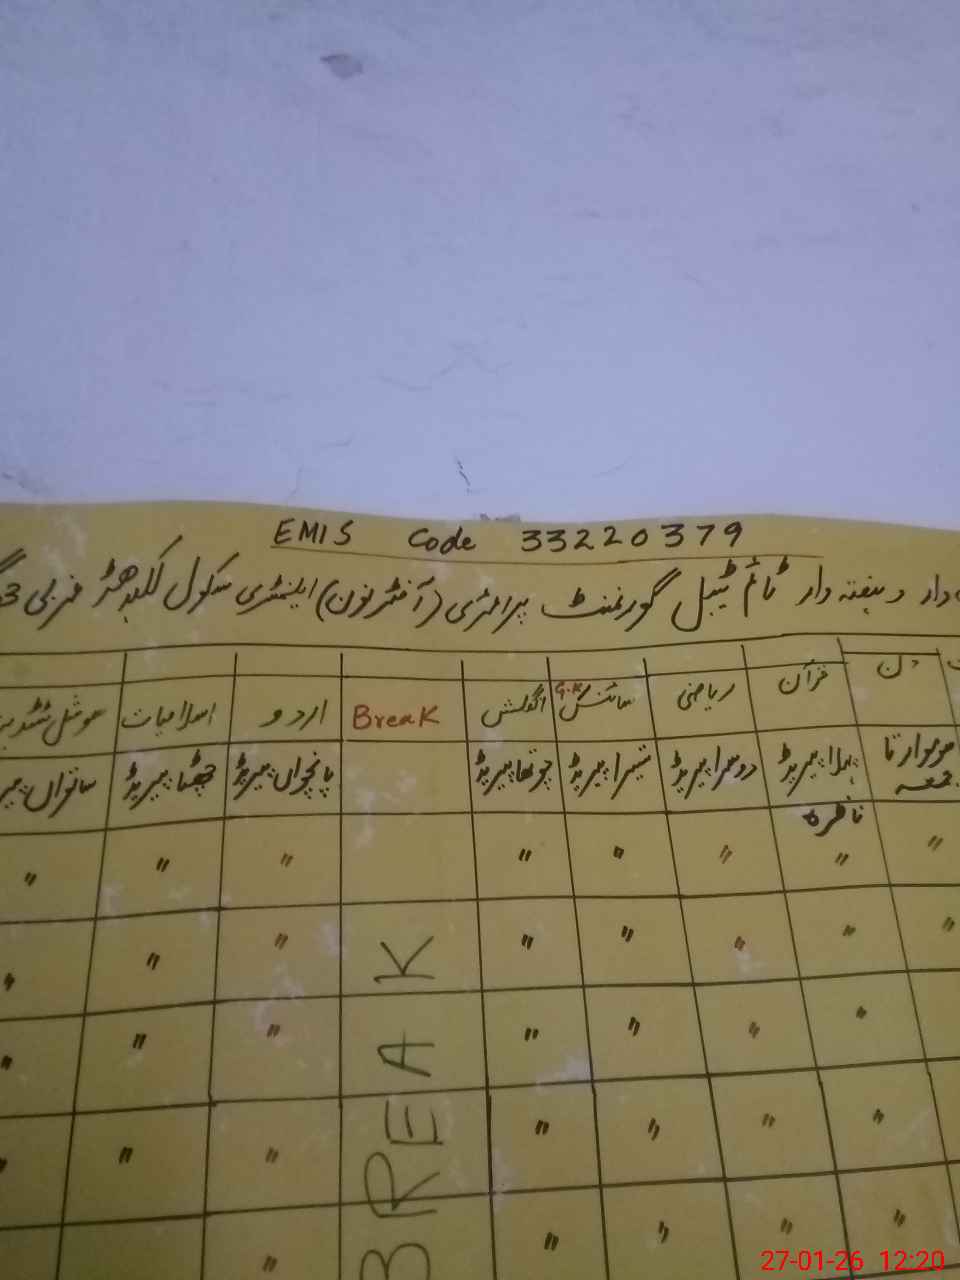 EMIS Code 33220379
دار و ہفتہ دار ٹائم ٹیبل گورنمنٹ پرائمری (آفٹر نون) ایلمنٹری سکول غربی
دن قرآن ریاضی سائنس G.K انگلش Break اردو اسلامیات سوشل سٹڈیز
سوموار تا جمعہ پہلا پیریڈ دوسرا پیریڈ تیسرا پیریڈ چوتھا پیریڈ پانچواں پیریڈ چھٹا پیریڈ ساتواں
ناظرہ
" " " " " " " "
" " " " " " " "
" " " " " " "
" " " " " " "
" " " " "
BREAK
27-01-26 12:20